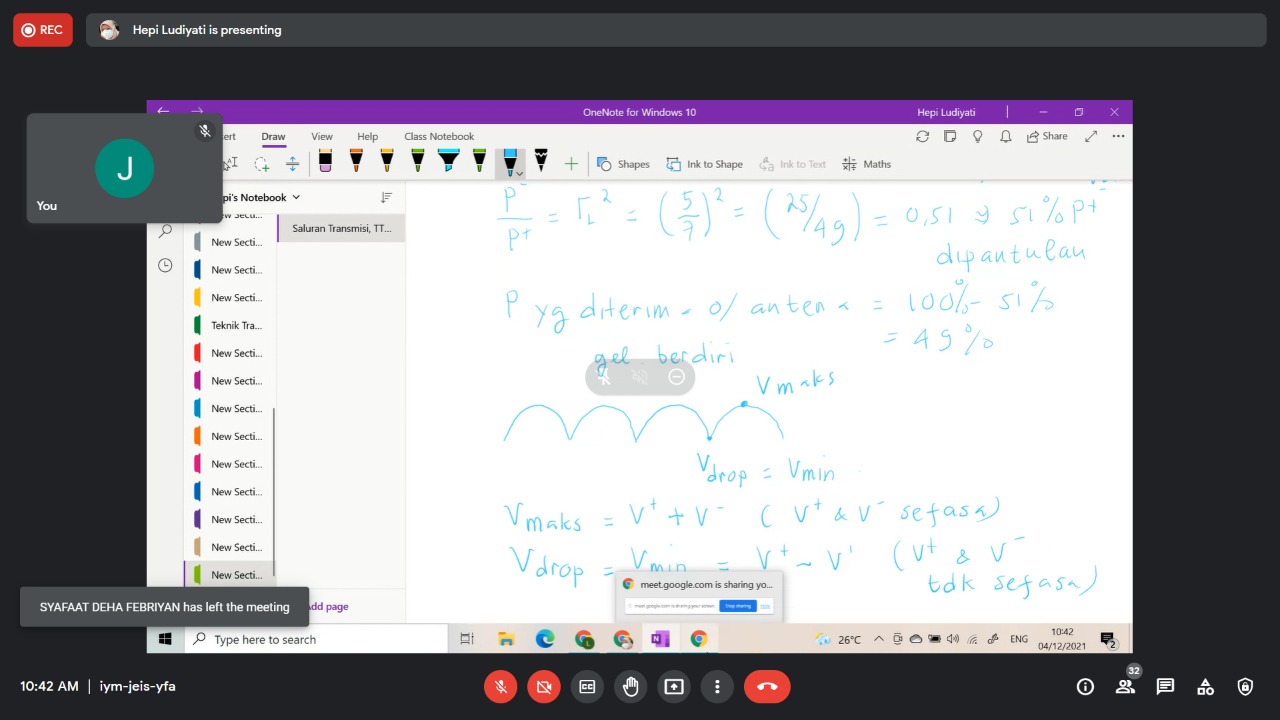 REC
Hepi Ludiyati is presenting
OneNote for Windows 10
Hepi Ludiyati
ert Draw View Help Class Notebook
Share
Shapes Ink to Shape Ink to Text Maths
J
You
pi's Notebook
New Secti...
New Secti...
New Secti...
New Secti...
Teknik Tra...
New Secti...
New Secti...
New Secti...
New Secti...
New Secti...
New Secti...
New Secti...
New Secti...
New Secti...
Saluran Transmisi, TT...
dd page
P⁻/P⁺ = Γ_L² = (5/7)² = (25/49) = 0,51 → 51% P⁺
dipantulan
P yg diterima o/ antena = 100% - 51%
= 49%
gel berdiri
Vmaks
Vdrop = Vmin
Vmaks = V⁺ + V⁻ ( V⁺ & V⁻ sefasa)
Vdrop = Vmin = V⁺ - V⁻ (V⁺ & V⁻
tdk sefasa)
meet.google.com is sharing yo...
meet.google.com is sharing your screen. Stop sharing Hide
SYAFAAT DEHA FEBRIYAN has left the meeting
Type here to search
26°C
ENG
10:42
04/12/2021
2
10:42 AM | iym-jeis-yfa
32